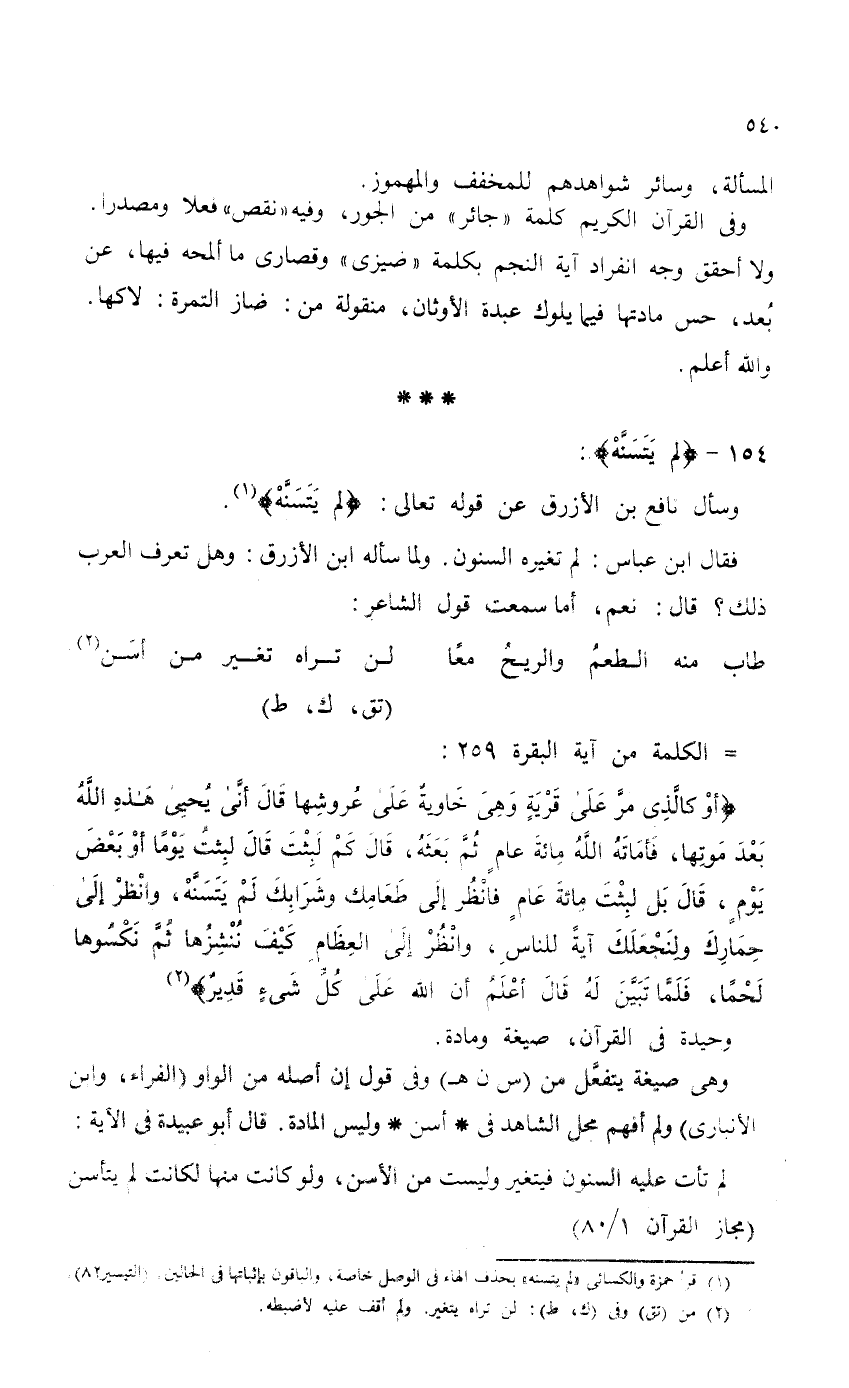 ٥٤٠
المسألة، وسائر شواهدهم للمخفف والمهموز.
وفى القرآن الكريم كلمة «جائر» من الجور، وفيه «نقص» فعلا ومصدرا.
ولا أحقق وجه انفراد آية النجم بكلمة «ضيزى» وقصارى ما ألمحه فيها، عن
بُعد، حس مادتها فيما يلوك عبدة الأوثان، منقولة من: ضاز التمرة: لاكها.
والله أعلم.
***
١٥٤ - ﴿لم يَتَسَنَّهْ﴾:
وسأل نافع بن الأزرق عن قوله تعالى: ﴿لم يَتَسَنَّهْ﴾(١).
فقال ابن عباس: لم تغيره السنون. ولما سأله ابن الأزرق: وهل تعرف العرب
ذلك؟ قال: نعم، أما سمعت قول الشاعر:
طاب منه الطعمُ والريحُ معًا لن تراه تغير من أسَن(٢)
(تق، ك، ط)
= الكلمة من آية البقرة ٢٥٩:
﴿أوْ كالَّذِى مرَّ عَلَىٰ قَرْيَةٍ وَهِىَ خَاويةٌ عَلَىٰ عُروشِها قَالَ أنَّىٰ يُحيِىٰ هَـٰذِهِ اللَّهُ
بَعْدَ مَوتِها، فَأمَاتَهُ اللَّهُ مِائةَ عامٍ ثُمَّ بَعَثَهُ، قَالَ كَمْ لَبِثْتَ قَالَ لبِثتُ يَوْمًا أوْ بَعْضَ
يَوْمٍ، قَالَ بَل لبِثْتَ مِائةَ عَامٍ فانْظُر إلَى طَعَامِك وشَرَابِكَ لَمْ يَتَسَنَّهْ، وانْظرْ إلَىٰ
حِمَارِكَ ولِنَجْعَلَكَ آيةً للناسِ، وانْظُرْ إلَىٰ العِظَامِ كَيْفَ نُنْشِزُها ثُمَّ نَكْسُوها
لَحْمًا، فَلَمَّا تَبَيَّنَ لَهُ قَالَ أعْلَمُ أن الله عَلَىٰ كُلِّ شَىءٍ قَدِيرٌ﴾(٢)
وحيدة فى القرآن، صيغة ومادة.
وهى صيغة يتفعَّل من (س ن هـ) وفى قول إن أصله من الواو (الفراء، وابن
الأنبارى) ولم أفهم محل الشاهد فى * أسن * وليس المادة. قال أبو عبيدة فى الآية:
لم تأت عليه السنون فيتغير وليست من الأسن، ولو كانت منها لكانت لم يتأسن
(مجاز القرآن ٨٠/١)
(١) قرأ حمزة والكسائى «لم يتسنه» بحذف الهاء فى الوصل خاصة، والباقون بإثباتها فى الحالين. (التيسير ٨٢).
(٢) من (تق) وفى (ك، ط): لن تراه يتغير. ولم أقف عليه لأضبطه.